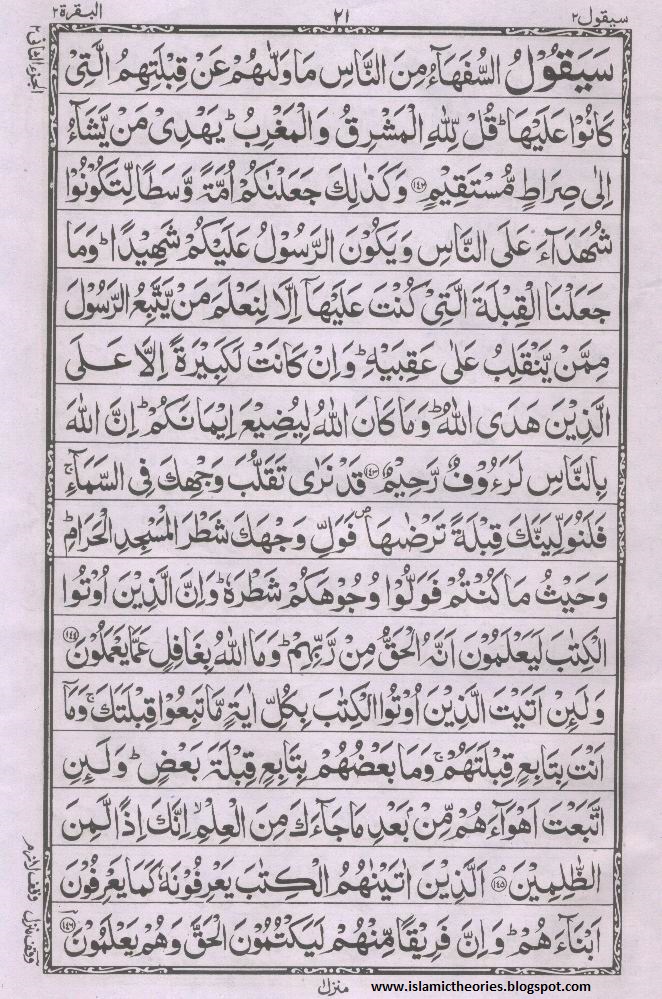 سيقول٢ ٢١ البقرة٢
سَيَقُوْلُ السُّفَهَآءُ مِنَ النَّاسِ مَا وَلّٰىهُمْ عَنْ قِبْلَتِهِمُ الَّتِىْ
كَانُوْا عَلَيْهَا ؕ قُلْ لِّلّٰهِ الْمَشْرِقُ وَ الْمَغْرِبُ ؕ يَهْدِىْ مَنْ يَّشَآءُ
اِلٰى صِرَاطٍ مُّسْتَقِيْمٍ ﴿۱۴۲﴾ وَكَذٰلِكَ جَعَلْنٰكُمْ اُمَّةً وَّسَطًا لِّتَكُوْنُوْا
شُهَدَآءَ عَلَى النَّاسِ وَيَكُوْنَ الرَّسُوْلُ عَلَيْكُمْ شَهِيْدًا ؕ وَمَا
جَعَلْنَا الْقِبْلَةَ الَّتِىْ كُنْتَ عَلَيْهَآ اِلَّا لِنَعْلَمَ مَنْ يَّتَّبِعُ الرَّسُوْلَ
مِمَّنْ يَّنْقَلِبُ عَلٰى عَقِبَيْهِ ؕ وَاِنْ كَانَتْ لَكَبِيْرَةً اِلَّا عَلَى
الَّذِيْنَ هَدَى اللّٰهُ ؕ وَمَا كَانَ اللّٰهُ لِيُضِيْعَ اِيْمَانَكُمْ ؕ اِنَّ اللّٰهَ
بِالنَّاسِ لَرَءُوْفٌ رَّحِيْمٌ ﴿۱۴۳﴾ قَدْ نَرٰى تَقَلُّبَ وَجْهِكَ فِى السَّمَآءِ ۚ
فَلَنُوَلِّيَنَّكَ قِبْلَةً تَرْضٰىهَا ۪ فَوَلِّ وَجْهَكَ شَطْرَ الْمَسْجِدِ الْحَرَامِ ؕ
وَحَيْثُ مَا كُنْتُمْ فَوَلُّوْا وُجُوْهَكُمْ شَطْرَهٗ ؕ وَاِنَّ الَّذِيْنَ اُوْتُوا
الْكِتٰبَ لَيَعْلَمُوْنَ اَنَّهُ الْحَقُّ مِنْ رَّبِّهِمْ ؕ وَمَا اللّٰهُ بِغَافِلٍ عَمَّا يَعْمَلُوْنَ ﴿۱۴۴﴾
وَلَئِنْ اَتَيْتَ الَّذِيْنَ اُوْتُوا الْكِتٰبَ بِكُلِّ اٰيَةٍ مَّا تَبِعُوْا قِبْلَتَكَ ۚ وَمَآ
اَنْتَ بِتَابِعٍ قِبْلَتَهُمْ ۚ وَمَا بَعْضُهُمْ بِتَابِعٍ قِبْلَةَ بَعْضٍ ؕ وَلَئِنِ
اتَّبَعْتَ اَهْوَآءَهُمْ مِّنْۢ بَعْدِ مَا جَآءَكَ مِنَ الْعِلْمِ ۙ اِنَّكَ اِذًا لَّمِنَ
الظّٰلِمِيْنَ ﴿۱۴۵﴾ اَلَّذِيْنَ اٰتَيْنٰهُمُ الْكِتٰبَ يَعْرِفُوْنَهٗ كَمَا يَعْرِفُوْنَ
اَبْنَآءَهُمْ ؕ وَاِنَّ فَرِيْقًا مِّنْهُمْ لَيَكْتُمُوْنَ الْحَقَّ وَهُمْ يَعْلَمُوْنَ ﴿۱۴۶﴾
الجزء الثانى ٢
منزل١
www.islamictheories.blogspot.com